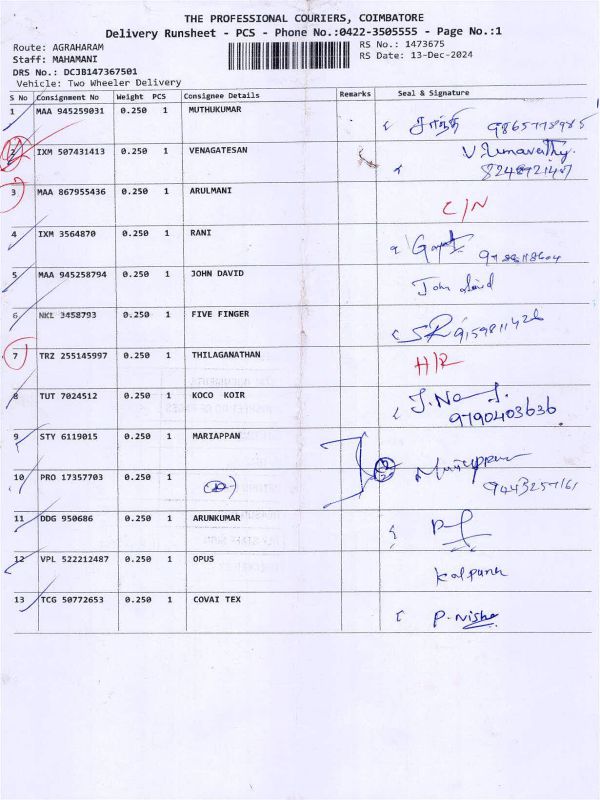 THE PROFESSIONAL COURIERS, COIMBATORE
Delivery Runsheet - PCS - Phone No.:0422-3505555 - Page No.:1
Route: AGRAHARAM RS No.: 1473675
Staff: MAHAMANI RS Date: 13-Dec-2024
DRS No.: DCJB147367501
Vehicle: Two Wheeler Delivery
S No Consignment No Weight PCS Consignee Details Remarks Seal & Signature
1 MAA 945259031 0.250 1 MUTHUKUMAR சாந்தி
2 IXM 507431413 0.250 1 VENAGATESAN V.Umavathy.
3 MAA 867955436 0.250 1 ARULMANI C/N
4 IXM 3564870 0.250 1 RANI
5 MAA 945258794 0.250 1 JOHN DAVID John David
6 NKL 3458793 0.250 1 FIVE FINGER
7 TRZ 255145997 0.250 1 THILAGANATHAN H/R
8 TUT 7024512 0.250 1 KOCO KOIR
9790403636
9 STY 6119015 0.250 1 MARIAPPAN
10 PRO 17357703 0.250 1 9443257161
11 DDG 950686 0.250 1 ARUNKUMAR
12 VPL 522212487 0.250 1 OPUS Kalpana
13 TCG 50772653 0.250 1 COVAI TEX P.Nisha